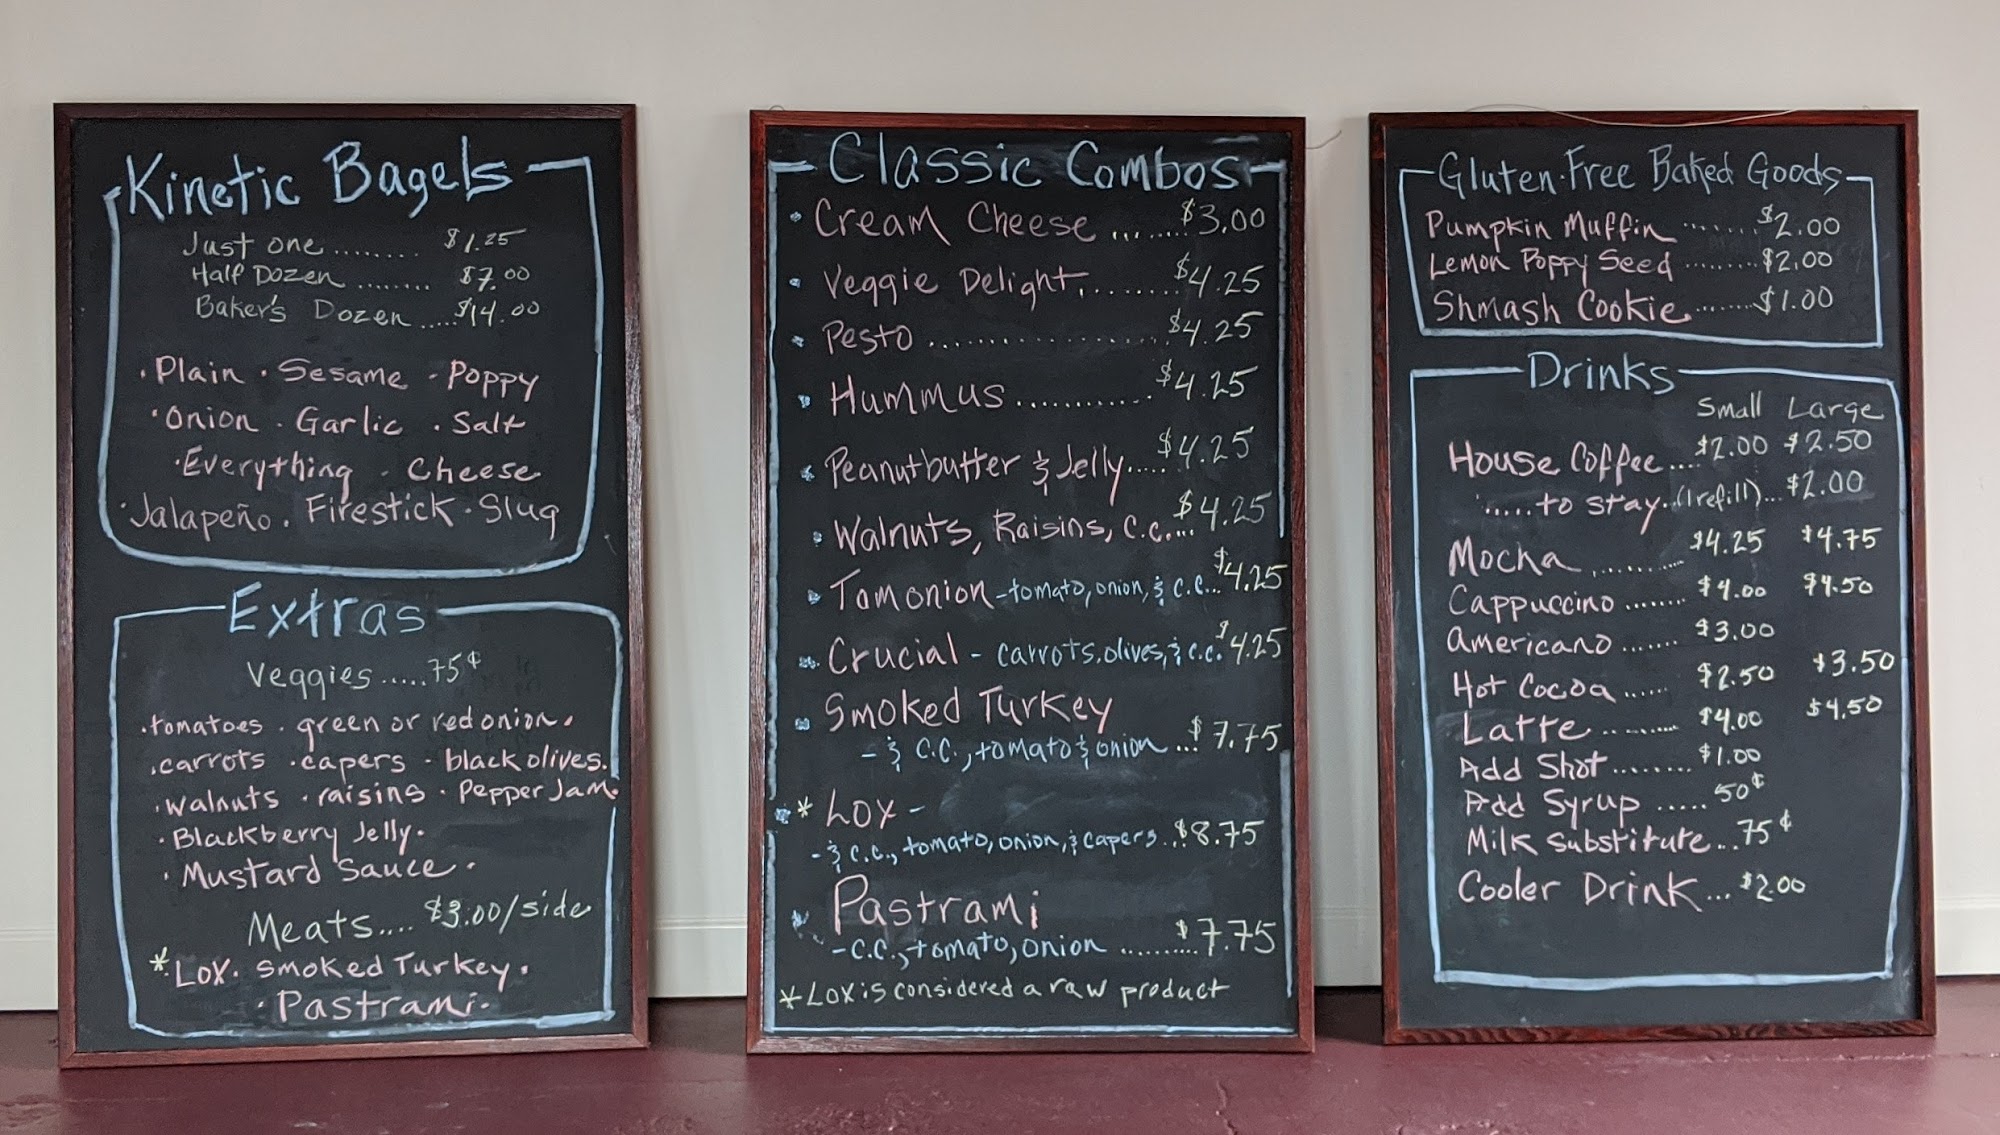 Kinetic Bagels
Just one ........ $1.25
Half Dozen ........ $7.00
Baker's Dozen ..... $14.00
· Plain · Sesame - Poppy
· Onion · Garlic · Salt
· Everything - Cheese
· Jalapeño · Firestick · Slug
Extras
Veggies ..... 75¢
· tomatoes · green or red onion ·
· carrots · capers - black olives.
· walnuts · raisins · Pepper Jam.
· Blackberry Jelly ·
· Mustard Sauce ·
Meats .... $3.00/side
* Lox · Smoked Turkey ·
· Pastrami ·
Classic Combos
· Cream Cheese ........ $3.00
· Veggie Delight ......... $4.25
· Pesto ................ $4.25
· Hummus ............ $4.25
· Peanutbutter & Jelly ..... $4.25
· Walnuts, Raisins, C.C.... $4.25
· Tomonion - tomato, onion, & C.C... $4.25
· Crucial - carrots, olives, & C.C. $4.25
· Smoked Turkey
- & C.C., tomato & onion ... $7.75
· * Lox -
- & C.C., tomato, onion, & capers ... $8.75
· Pastrami
- C.C., tomato, onion .......... $7.75
* Lox is considered a raw product
Gluten-Free Baked Goods
Pumpkin Muffin ........ $2.00
Lemon Poppy Seed ......... $2.00
Shmash Cookie ........ $1.00
Drinks
Small Large
House Coffee .... $2.00 $2.50
..... to stay.. (1 refill)... $2.00
Mocha .......... $4.25 $4.75
Cappuccino ....... $4.00 $4.50
Americano ....... $3.00
Hot Cocoa ...... $2.50 $3.50
Latte ......... $4.00 $4.50
Add Shot ........ $1.00
Add Syrup ..... 50¢
Milk Substitute .. 75¢
Cooler Drink ... $2.00